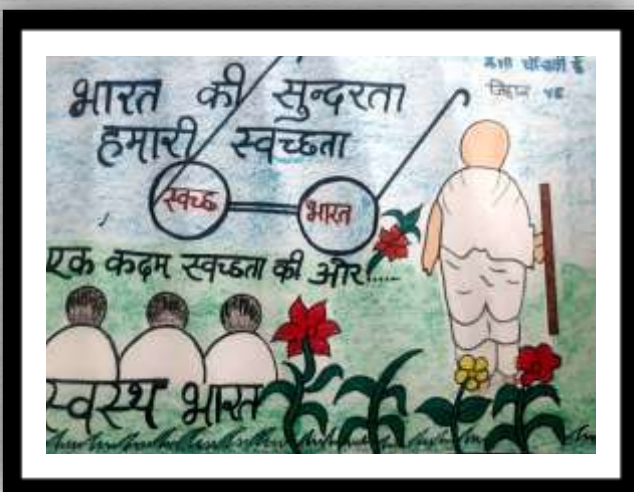 भारत की सुन्दरता
हमारी स्वच्छता
स्वच्छ भारत
एक कदम स्वच्छता की ओर!.....
स्वस्थ भारत